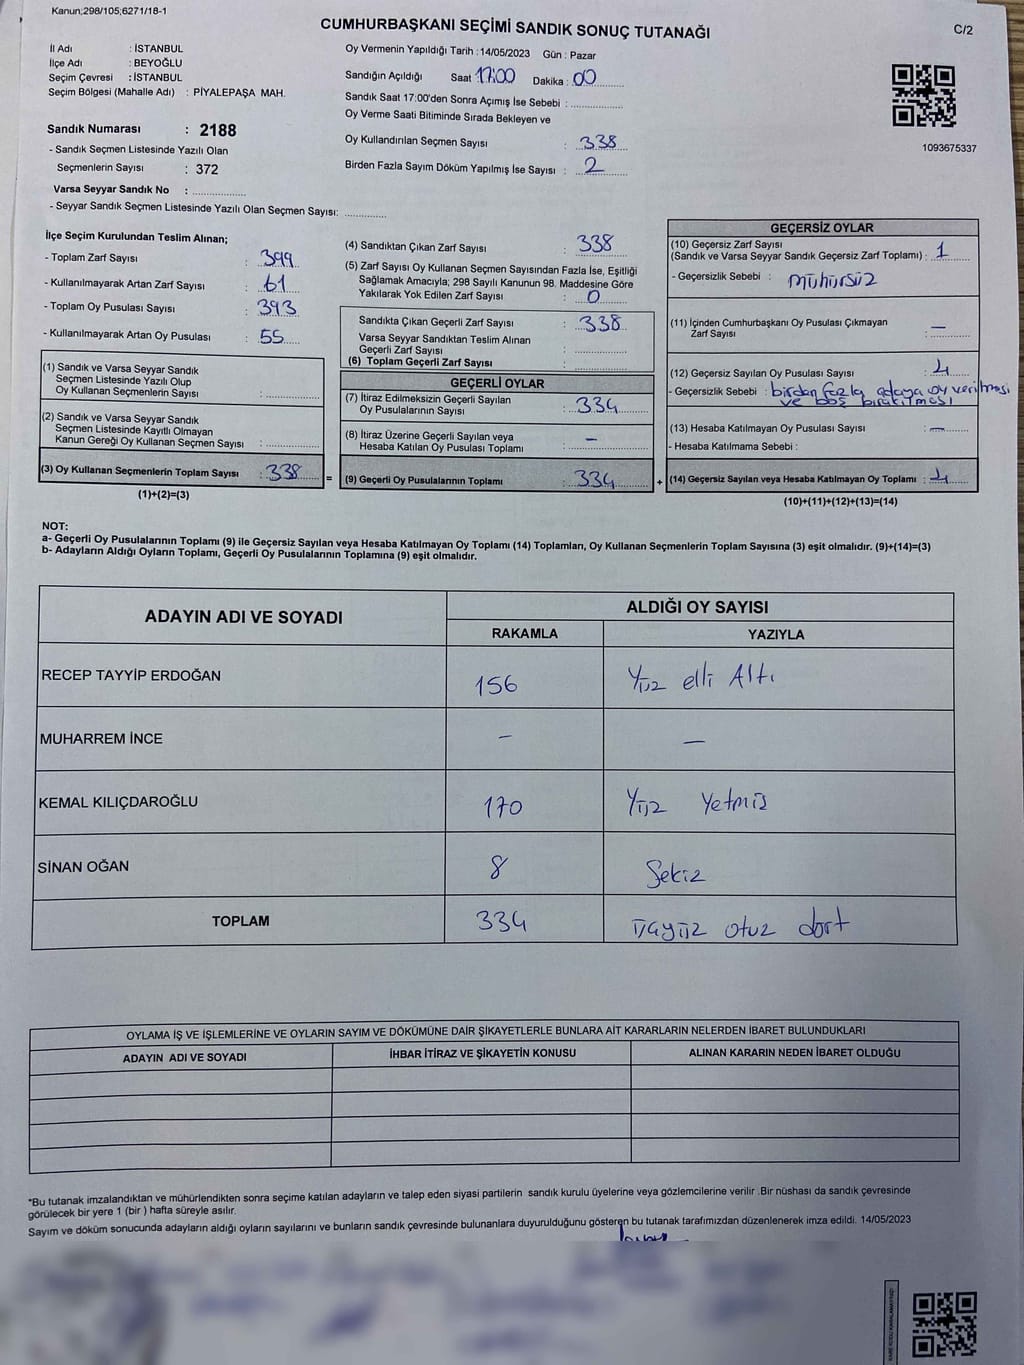 Kanun;298/105;6271/18-1
CUMHURBAŞKANI SEÇİMİ SANDIK SONUÇ TUTANAĞI
C/2
İl Adı : İSTANBUL
İlçe Adı : BEYOĞLU
Seçim Çevresi : İSTANBUL
Seçim Bölgesi (Mahalle Adı) : PİYALEPAŞA MAH.
Sandık Numarası : 2188
- Sandık Seçmen Listesinde Yazılı Olan
Seçmenlerin Sayısı : 372
Varsa Seyyar Sandık No :
- Seyyar Sandık Seçmen Listesinde Yazılı Olan Seçmen Sayısı:
Oy Vermenin Yapıldığı Tarih : 14/05/2023 Gün : Pazar
Sandığın Açıldığı Saat 17:00 Dakika : 00
Sandık Saat 17:00'den Sonra Açımış İse Sebebi :
Oy Verme Saati Bitiminde Sırada Bekleyen ve
Oy Kullandırılan Seçmen Sayısı : 338
Birden Fazla Sayım Döküm Yapılmış İse Sayısı : 2
1093675337
İlçe Seçim Kurulundan Teslim Alınan;
- Toplam Zarf Sayısı : 399
- Kullanılmayarak Artan Zarf Sayısı : 61
- Toplam Oy Pusulası Sayısı : 393
- Kullanılmayarak Artan Oy Pusulası : 55
(1) Sandık ve Varsa Seyyar Sandık
Seçmen Listesinde Yazılı Olup
Oy Kullanan Seçmenlerin Sayısı :
(2) Sandık ve Varsa Seyyar Sandık
Seçmen Listesinde Kayıtlı Olmayan
Kanun Gereği Oy Kullanan Seçmen Sayısı :
(3) Oy Kullanan Seçmenlerin Toplam Sayısı : 338 =
(1)+(2)=(3)
(4) Sandıktan Çıkan Zarf Sayısı : 338
(5) Zarf Sayısı Oy Kullanan Seçmen Sayısından Fazla İse, Eşitliği
Sağlamak Amacıyla; 298 Sayılı Kanunun 98. Maddesine Göre
Yakılarak Yok Edilen Zarf Sayısı : 0
Sandıkta Çıkan Geçerli Zarf Sayısı : 338
Varsa Seyyar Sandıktan Teslim Alınan
Geçerli Zarf Sayısı :
(6) Toplam Geçerli Zarf Sayısı :
GEÇERLİ OYLAR
(7) İtiraz Edilmeksizin Geçerli Sayılan
Oy Pusulalarının Sayısı : 334
(8) İtiraz Üzerine Geçerli Sayılan veya
Hesaba Katılan Oy Pusulası Toplamı : –
(9) Geçerli Oy Pusulalarının Toplamı : 334 +
GEÇERSİZ OYLAR
(10) Geçersiz Zarf Sayısı
(Sandık ve Varsa Seyyar Sandık Geçersiz Zarf Toplamı) : 1
- Geçersizlik Sebebi : mühürsüz
(11) İçinden Cumhurbaşkanı Oy Pusulası Çıkmayan
Zarf Sayısı : –
(12) Geçersiz Sayılan Oy Pusulası Sayısı : 4
- Geçersizlik Sebebi : birden fazla adaya oy verilmesi
ve boş bırakılması
(13) Hesaba Katılmayan Oy Pusulası Sayısı : –
- Hesaba Katılmama Sebebi :
(14) Geçersiz Sayılan veya Hesaba Katılmayan Oy Toplamı : 4
(10)+(11)+(12)+(13)=(14)
NOT:
a- Geçerli Oy Pusulalarının Toplamı (9) ile Geçersiz Sayılan veya Hesaba Katılmayan Oy Toplamı (14) Toplamları, Oy Kullanan Seçmenlerin Toplam Sayısına (3) eşit olmalıdır. (9)+(14)=(3)
b- Adayların Aldığı Oyların Toplamı, Geçerli Oy Pusulalarının Toplamına (9) eşit olmalıdır.
ADAYIN ADI VE SOYADI ALDIĞI OY SAYISI
RAKAMLA YAZIYLA
RECEP TAYYİP ERDOĞAN 156 Yüz elli Altı
MUHARREM İNCE – –
KEMAL KILIÇDAROĞLU 170 Yüz Yetmiş
SİNAN OĞAN 8 Sekiz
TOPLAM 334 üçyüz otuz dört
OYLAMA İŞ VE İŞLEMLERİNE VE OYLARIN SAYIM VE DÖKÜMÜNE DAİR ŞİKAYETLERLE BUNLARA AİT KARARLARIN NELERDEN İBARET BULUNDUKLARI
ADAYIN ADI VE SOYADI İHBAR İTİRAZ VE ŞİKAYETİN KONUSU ALINAN KARARIN NEDEN İBARET OLDUĞU
*Bu tutanak imzalandıktan ve mühürlendikten sonra seçime katılan adayların ve talep eden siyasi partilerin sandık kurulu üyelerine veya gözlemcilerine verilir .Bir nüshası da sandık çevresinde
görülecek bir yere 1 (bir ) hafta süreyle asılır.
Sayım ve döküm sonucunda adayların aldığı oyların sayılarını ve bunların sandık çevresinde bulunanlara duyurulduğunu gösteren bu tutanak tarafımızdan düzenlenerek imza edildi. 14/05/2023